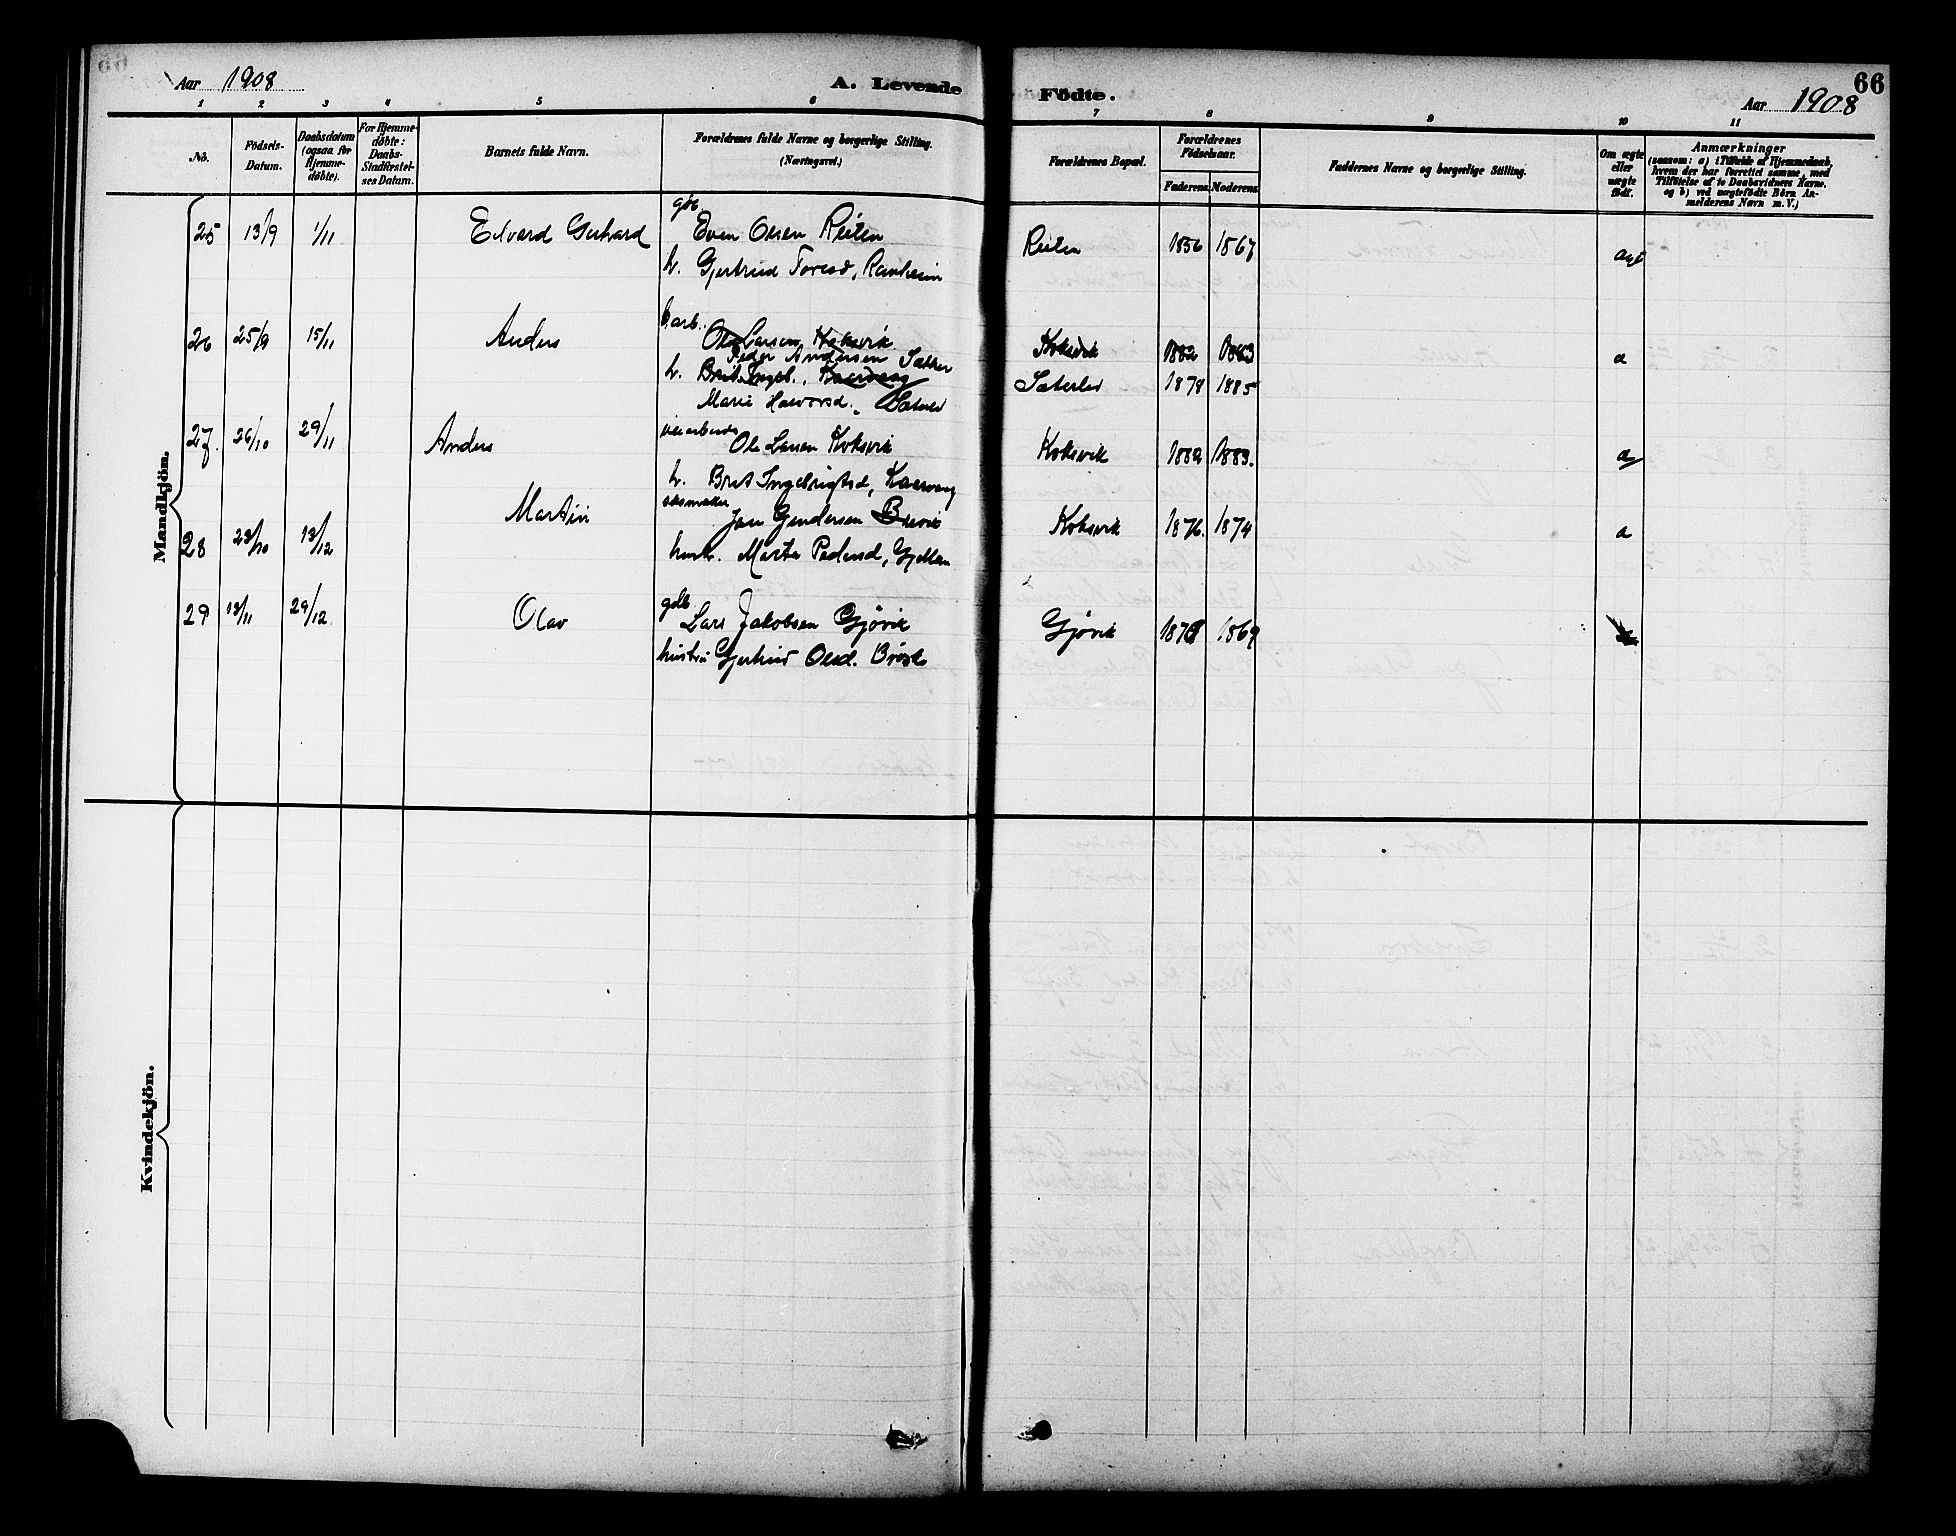 Aar 1908
A. Levende Födte.
66
Aar 1908
1 2 3 4 5 6 7 8 9 10 11
No.
Födsels-Datum.
Daabsdatum (ogsaa for Hjemme-döbte).
For Hjemme-döbte: Daabs-Stadfæstel-ses Datum.
Barnets fulde Navn.
Forældrenes fulde Navne og borgerlige Stilling. (Næringsvei.)
Forældrenes Bopæl.
Forældrenes Födselsaar.
Faderens. Moderens.
Faddernes Navne og borgerlige Stilling.
Om ægte eller uægte födt.
Anmærkninger
(saasom: a) i Tilfælde af Hjemmedaab, hvem der har forrettet samme, med Tilföielse af to Daabsvidners Navne. og b) ved uægtefödte Börn An-melderens Navn m. V.)
Mandkjön.
25 13/9 1/11 Edvard Gerhard gdb. Even Olsen Reiten Reiten 1856 1867 ægt
h. Gjertrud Toresd, Ranheim
26 25/9 15/11 Anders arb. Ole Larsen Koksvik Koksvik 1882 1883 a
Peder Andersen Sæther
h. Brit Ingeb., Kaarvaag Sæterlid 1878 1885
Marie Halvorsd.
27 26/10 29/11 Anders veiarbeider Ole Larsen Koksvik Koksvik 1882 1883. a
h. Brit Ingebrigtsd, Kaarvaag
28 23/10 13/12 Martin Gundersen Koksvik 1876. 1874 a
hustr. Marta Pedersd,
29 13/11 29/12 Olav gdb. Lars Jakobsen Gjøvik Gjøvik 1878 1869
hustru Gjertrud Olsd.
Kvindekjön.